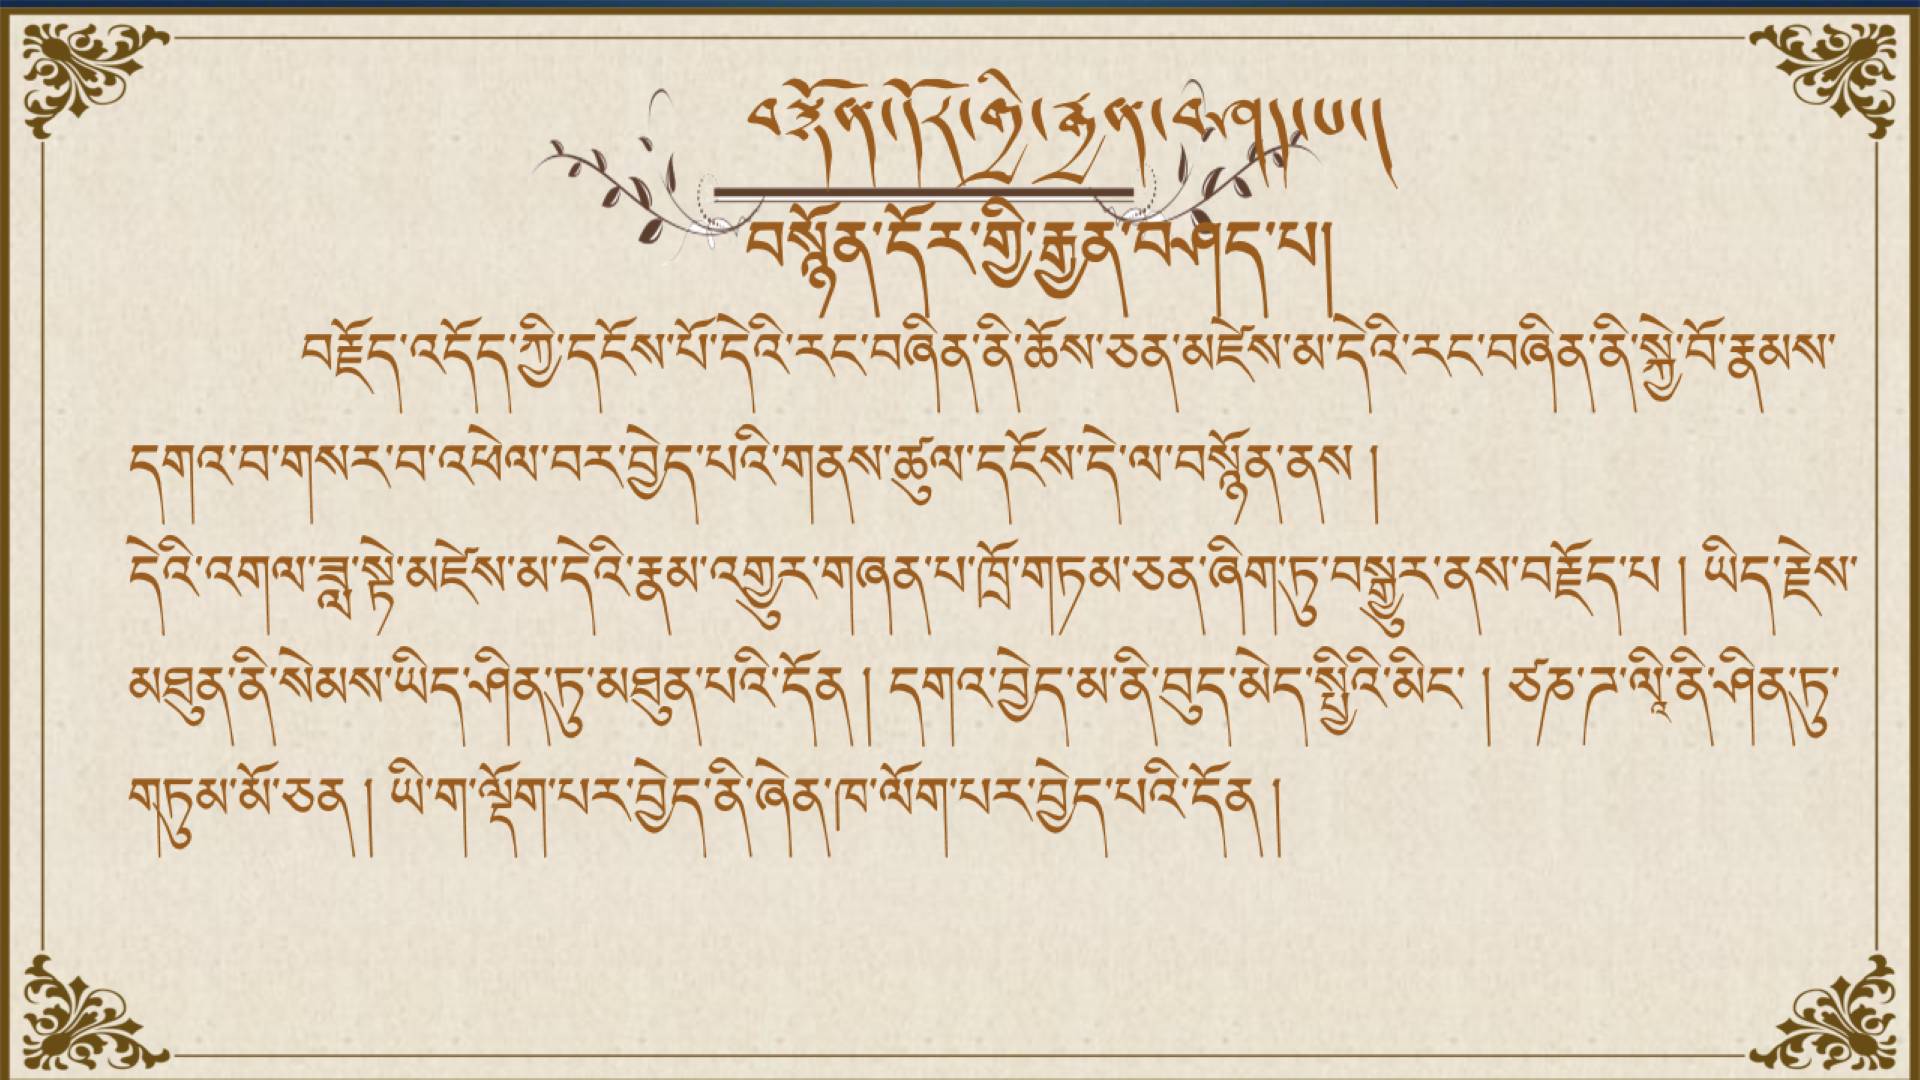 བསྙོན་དོར་གྱི་རྒྱན་བཤད་པ།
བརྗོད་འདོད་ཀྱི་དངོས་པོ་དེའི་རང་བཞིན་ནི་ཆོས་ཅན་མཛེས་མ་དེའི་རང་བཞིན་ནི་སྐྱེ་བོ་རྣམས་
དགའ་བ་གསར་བ་འཕེལ་བར་བྱེད་པའི་གནས་ཚུལ་དངོས་དེ་ལ་བསྙོན་ནས །
དེའི་འགལ་ཟླ་སྟེ་མཛེས་མ་དེའི་རྣམ་འགྱུར་གཞན་པ་ཁྲོ་གཏམ་ཅན་ཞིག་ཏུ་བསྒྱུར་ནས་བརྗོད་པ ། ཡིད་རྗེས་
མཐུན་ནི་སེམས་ཡིད་ཤིན་ཏུ་མཐུན་པའི་དོན ། དགའ་བྱེད་མ་ནི་བུད་མེད་སྤྱིའི་མིང་ ། ཙཎ་ཌ་ལཱི་ནི་ཤིན་ཏུ་
གཏུམ་མོ་ཅན ། ཡི་ག་ལྡོག་པར་བྱེད་ནི་ཞེན་ཁ་ལོག་པར་བྱེད་པའི་དོན །